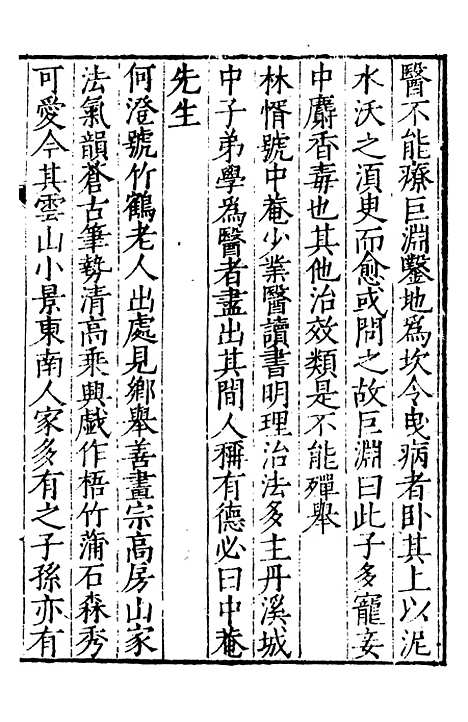 醫不能療巨淵鑿地爲坎令曳病者卧其上以泥
水沃之湏臾而愈或問之故巨淵曰此子多寵妾
中麝香毒也其他治效類是不能殫舉
林惰號中菴少業醫讀書明理治法多主丹溪城
中子弟學爲醫者盡出其間人稱有德必曰中菴
先生
何澄號竹鶴老人出處見鄉舉善畫宗高房山家
法氣韻蒼古筆勢清高乘興戯作梧竹蒲石森秀
可愛今其雲山小景東南人家多有之子孫亦有